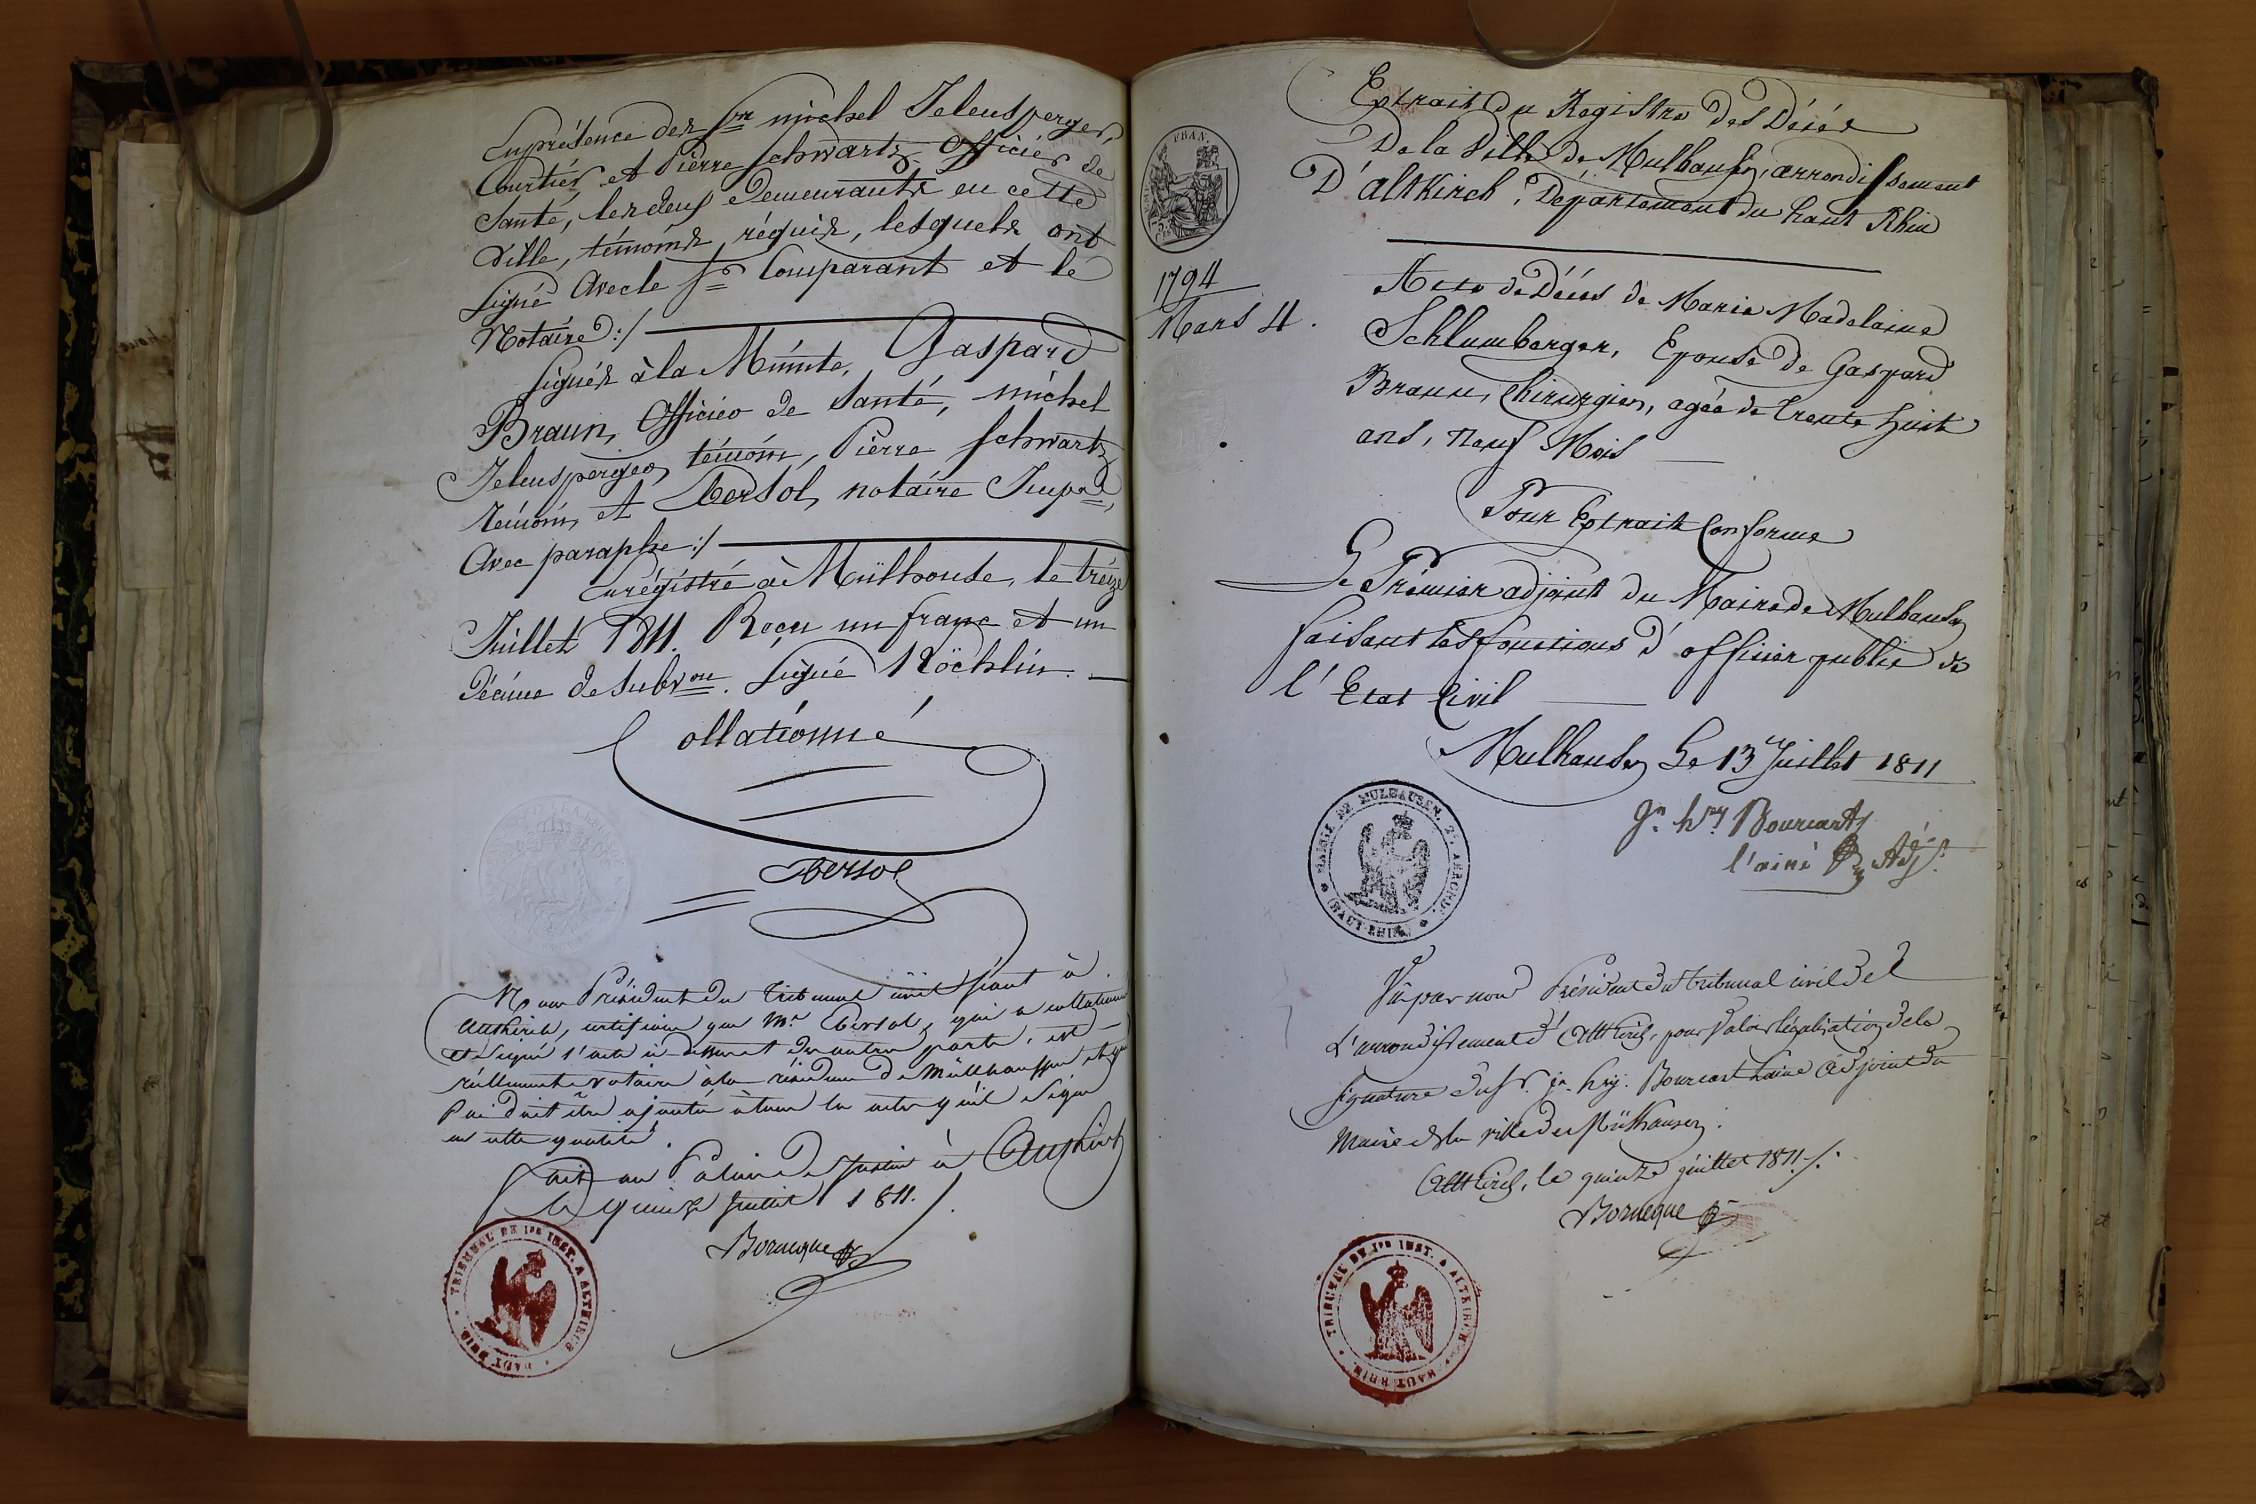 En présence des Srs michel Jelensperger,
Courtier et Pierre Schwartz Officier de
Santé, les deux Demeurants en cette
Ville, témoins réquis, lesquels ont
Signé Avec le Sr Comparant et le
Notaire :/
Signés à la Minute, Gaspard
Braun, Officier de Santé, michel
Jelensperger, témoin, Pierre Schwartz
témoin, et Bersol, notaire Imp.al,
Avec paraphe :/
Enrégistré à Mülhouse, le treize
Juillet 1811. Reçu un franc et un
Décime de Subv.on. Signé Röchlin.
Collationné
Bersol
Nous Président du Tribunal civil séant à
Altkirch, certifions que Mr Bersol, qui a collationné
et Signé l'acte ci dessus et des autres parts, est
réellement notaire à la résidence de Mülhausen et que
foi doit être ajoutée à tous les actes qu'il Signe
en cette qualité.
Fait au Palais de Justice à Altkirch
le quinze Juillet 1811.
Bornèque
TRIBUNAL DE 1RE INST. A ALTKIRCH
HAUT RHIN
Extrait Du Registre Des Décès
De la Ville de Mulhausen, arrondissement
D'altKirch, Département du haut Rhin
FRAN
1794
Mars 4.
Acte de Décès de Marie Madelaine
Schlumberger, Epouse de Gaspard
Braun, Chirurgien, agée de trente huit
ans, neuf Mois
Pour Extrait Conforme
Le Prémier adjoint du Maire de Mulhausen
faisant les fonctions d'officier public de
l'Etat Civil
Mulhausen Le 13 Juillet 1811
Jn hry Bourcart
l'ainé Adj.t
MAIRIE DE MULHAUSEN, 2e ARROND.
(HAUT-RHIN)
Vu par nous Président du tribunal civil de
L'arrondissement d'Altkirch, pour valoir légalisation de la
signature du Sr. Jn. hry. Bourcart L'ainé Adjoint du
Maire de la ville de Mülhausen.
Altkirch, le quinze juillet 1811./.
Bornèque
TRIBUNAL DE 1RE INST. A ALTKIRCH
HAUT-RHIN